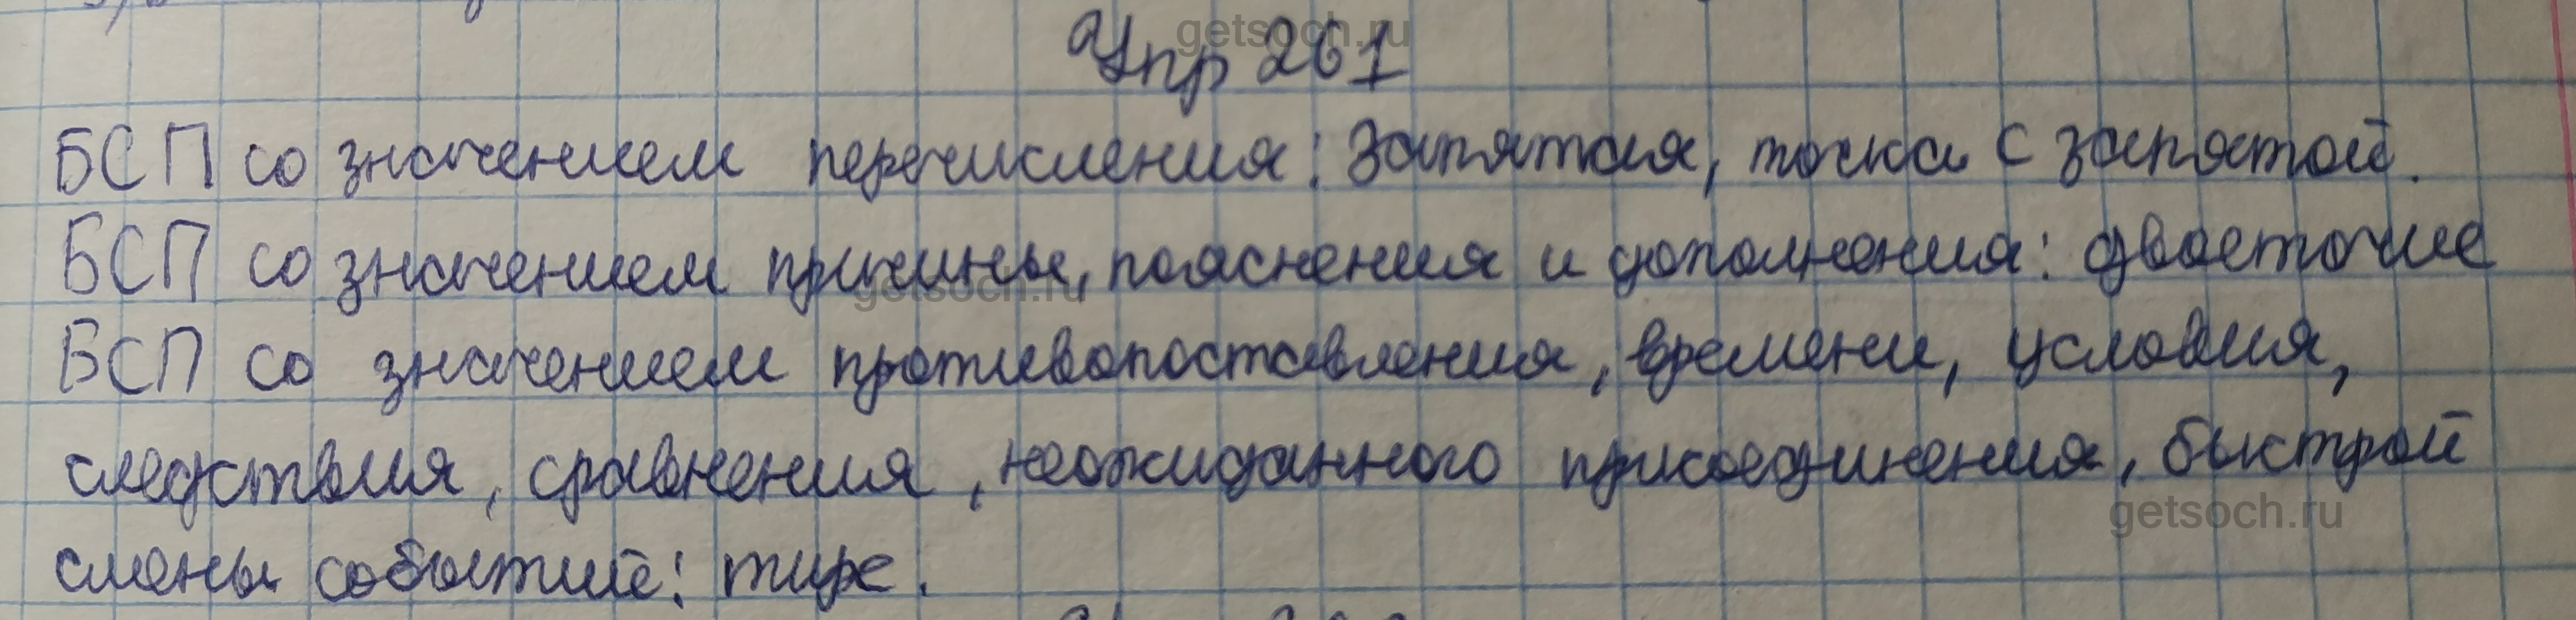 Упр 261
БСП со значением перечисления: запятая, точка с запятой.
БСП со значением причины, пояснения и дополнения: двоеточие
БСП со значением противопоставления, времени, условия,
следствия, сравнения, неожиданного присоединения, быстрой
смены событий: тире.
getsoch.ru
getsoch.ru
getsoch.ru